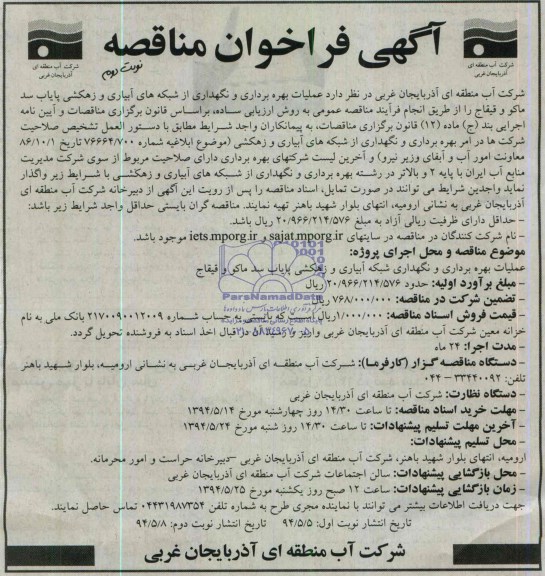 آگهی فراخوان مناقصه
نوبت دوم
شرکت آب منطقه ای
آذربایجان غربی
شرکت آب منطقه ای
آذربایجان غربی
شرکت آب منطقه ای آذربایجان غربی در نظر دارد عملیات بهره برداری و نگهداری از شبکه های آبیاری و زهکشی پایاب سد
ماکو و قیقاج را از طریق انجام فرآیند مناقصه عمومی به روش ارزیابی ساده، براساس قانون برگزاری مناقصات و آیین نامه
اجرایی بند (ج) ماده (۱۲) قانون برگزاری مناقصات، به پیمانکاران واجد شرایط مطابق با دستور العمل تشخیص صلاحیت
شرکت ها در امر بهره برداری و نگهداری از شبکه های آبیاری و زهکشی (موضوع ابلاغیه شماره ۷۶۶۶۴/۷۰۰ تاریخ ۸۶/۱۰/۱
معاونت امور آب و آبفای وزیر نیرو) و آخرین لیست شرکتهای بهره برداری دارای صلاحیت مربوط از سوی شرکت مدیریت
منابع آب ایران با پایه ۲ و بالاتر در رشته بهره برداری و نگهداری از شبکه های آبیاری و زهکشی با شرایط زیر واگذار
نماید واجدین شرایط می توانند در صورت تمایل، اسناد مناقصه را پس از رویت این آگهی از دبیرخانه شرکت آب منطقه ای
آذربایجان غربی به نشانی ارومیه، انتهای بلوار شهید باهنر تهیه نمایند. مناقصه گران بایستی حداقل واجد شرایط زیر باشد:
- حداقل دارای ظرفیت ریالی آزاد به مبلغ ۲۰/۹۶۶/۲۱۴/۵۷۶ ریال باشد.
- نام شرکت کنندگان در مناقصه در سایتهای sajat.mporg.ir و iets.mporg.ir موجود باشد.
موضوع مناقصه و محل اجرای پروژه:
عملیات بهره برداری و نگهداری شبکه آبیاری و زهکشی پایاب سد ماکو و قیقاج
- مبلغ برآورد اولیه: حدود ۲۰/۹۶۶/۲۱۴/۵۷۶ ریال
- تضمین شرکت در مناقصه: ۷۶۸/۰۰۰/۰۰۰ ریال
- قیمت فروش اسناد مناقصه: ۱/۰۰۰/۰۰۰ ریال است که بایستی به حساب شماره ۲۱۷۰۰۹۰۰۱۲۰۰۹ بانک ملی به نام
خزانه معین شرکت آب منطقه ای آذربایجان غربی واریز و رسید آن در قبال اخذ اسناد به فروشنده تحویل گردد.
- مدت اجرا: ۲۴ ماه
- دستگاه مناقصه گزار (کارفرما): شرکت آب منطقه ای آذربایجان غربی به نشانی ارومیه، بلوار شهید باهنر
تلفن: ۳۳۴۴۰۰۹۲ – ۰۴۴
- دستگاه نظارت: شرکت آب منطقه ای آذربایجان غربی
- مهلت خرید اسناد مناقصه: تا ساعت ۱۴/۳۰ روز چهارشنبه مورخ ۱۳۹۴/۵/۱۴
- آخرین مهلت تسلیم پیشنهادات: تا ساعت ۱۴/۳۰ روز شنبه مورخ ۱۳۹۴/۵/۲۴
- محل تسلیم پیشنهادات:
ارومیه، انتهای بلوار شهید باهنر، شرکت آب منطقه ای آذربایجان غربی – دبیرخانه حراست و امور محرمانه.
- محل بازگشایی پیشنهادات: سالن اجتماعات شرکت آب منطقه ای آذربایجان غربی
- زمان بازگشایی پیشنهادات: ساعت ۱۲ صبح روز یکشنبه مورخ ۱۳۹۴/۵/۲۵
جهت دریافت اطلاعات بیشتر می توانند با نماینده مجری طرح به شماره تلفن ۰۴۴۳۱۹۸۷۳۵۴ تماس حاصل نمایند.
تاریخ انتشار نوبت اول: ۹۴/۵/۵ تاریخ انتشار نوبت دوم: ۹۴/۵/۸
شرکت آب منطقه ای آذربایجان غربی
ParsNamadData